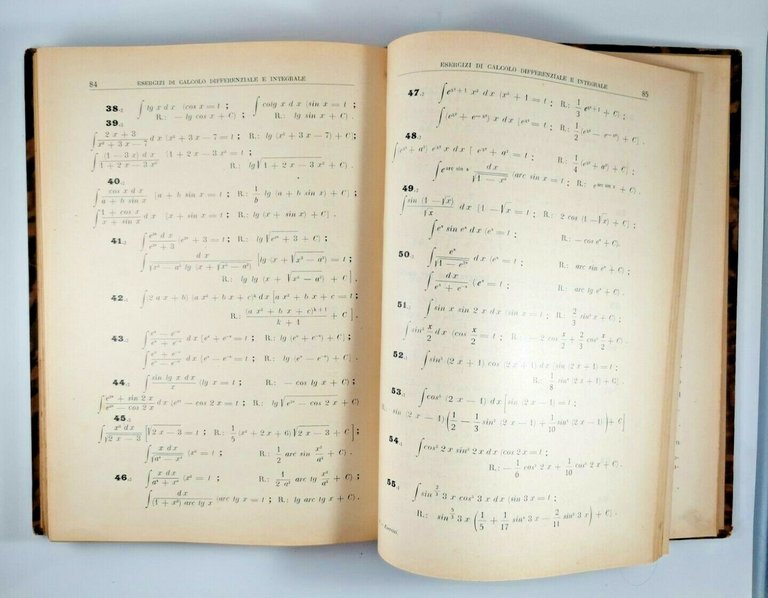 84 ESERCIZI DI CALCOLO DIFFERENZIALE E INTEGRALE
38.: ∫ tg x d x (cos x = t ; ∫ cotg x d x (sin x = t ;
R.: — lg cos x + C) ; R.: lg sin x + C) .
39.:
∫ (2 x + 3)/(x² + 3 x — 7) d x (x² + 3 x — 7 = t ; R.: lg (x² + 3 x — 7) + C]
∫ (1 — 3 x) d x/(1 + 2 x — 3 x²) [1 + 2 x — 3 x² = t ;
R.: lg √(1 + 2 x — 3 x²) + C) .
40.:
∫ cos x d x/(a + b sin x) [a + b sin x = t ; R.: 1/b lg (a + b sin x) + C]
∫ (1 + cos x)/(x + sin x) d x [x + sin x = t ; R.: lg (x + sin x) + C] .
41.: ∫ e²ˣ d x/(e²ˣ + 3) (e²ˣ + 3 = t ; R.: lg √(e²ˣ + 3) + C) ;
∫ d x/(√(x² — a²) lg (x + √(x² — a²)) [lg (x + √(x² — a²) = t ;
R.: lg lg (x + √(x² — a²) + C] .
42.: ∫(2 a x + b) (a x² + b x + c)ᵏ d x [a x² + b x + c = t ;
R.: (a x² + b x + c)ᵏ⁺¹/(k + 1) + C] .
43.: ∫ (eˣ — e⁻ˣ)/(eˣ + e⁻ˣ) d x [eˣ + e⁻ˣ = t ; R.: lg (eˣ + e⁻ˣ) + C] ;
∫ (eˣ + e⁻ˣ)/(eˣ — e⁻ˣ) d x [eˣ — e⁻ˣ = t ; R.: lg (eˣ — e⁻ˣ) + C] .
44.: ∫ sin lg x d x/x (lg x = t ; R.: — cos lg x + C) ;
∫ (e²ˣ + sin 2 x)/(e²ˣ — cos 2 x) d x (e²ˣ — cos 2 x = t ; R.: lg √(e²ˣ — cos 2 x) + C)
45.:
∫ x² d x/√(2 x — 3) [√(2 x — 3) = t ; R.: 1/5 (x² + 2 x + 6) √(2 x — 3) + C] ;
∫ x d x/√(a⁴ — x⁴) (x² = t ; R.: 1/2 arc sin x²/a² + C) .
46.: ∫ x d x/(a⁴ + x⁴) (x² = t ; R.: 1/(2 a²) arc tg x²/a² + C) ;
∫ d x/((1 + x²) arc tg x) (arc tg x = t ; R.: lg arc tg x + C) .
ESERCIZI DI CALCOLO DIFFERENZIALE E INTEGRALE 85
47.: ∫ eˣ³⁺¹ x² d x (x³ + 1 = t ; R.: 1/3 eˣ³⁺¹ + C) ;
48.:
∫ eᵃʳᶜ ˢⁱⁿ ˣ d x/√(1 — x²) (arc sin x = t ; R.: eᵃʳᶜ ˢⁱⁿ ˣ + C) .
49.:
∫ sin (1 — √x)/√x d x [1 — √x = t ; R.: 2 cos (1 — √x) + C] ;
∫ eˣ sin eˣ d x (eˣ = t ; R.: — cos eˣ + C) .
50.: ∫ eˣ/√(1 — e²ˣ) d x (eˣ = t ; R.: arc sin eˣ + C) ;
∫ d x/(eˣ + e⁻ˣ) (eˣ = t ; R.: arc tg eˣ + C) .
51.: ∫ sin x sin 2 x d x (sin x = t ; R.: 2/3 sin³ x + C) ;
∫ sin³ x/2 d x (cos x/2 = t ; R.: — 2 cos x/2 + 2/3 cos³ x/2 + C) .
52.: ∫ sin³ (2 x + 1) cos (2 x + 1) d x [sin (2 x + 1) = t ;
R.: 1/8 sin⁴ (2 x + 1) + C] .
53.: ∫ cos⁵ (2 x — 1) d x [sin (2 x — 1) = t ;
R.: sin (2 x — 1) (1/2 — 1/3 sin² (2 x — 1) + 1/10 sin⁴ (2 x — 1)) + C]
54.: ∫ cos² 2 x sin³ 2 x d x (cos 2 x = t ;
R.: — 1/6 cos³ 2 x + 1/10 cos⁵ 2 x + C) .
55.: ∫ sin^(2/3) 3 x cos⁵ 3 x d x (sin 3 x = t ;
R.: sin^(5/3) 3 x (1/5 + 1/17 sin⁴ 3 x — 2/11 sin² 3 x) + C] .